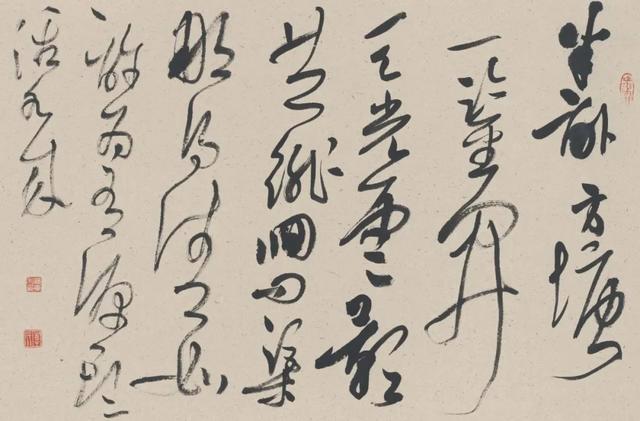 半畝方塘
一鑑開
天光雲影
共徘徊問渠
那得清如
許為有源頭
活水來